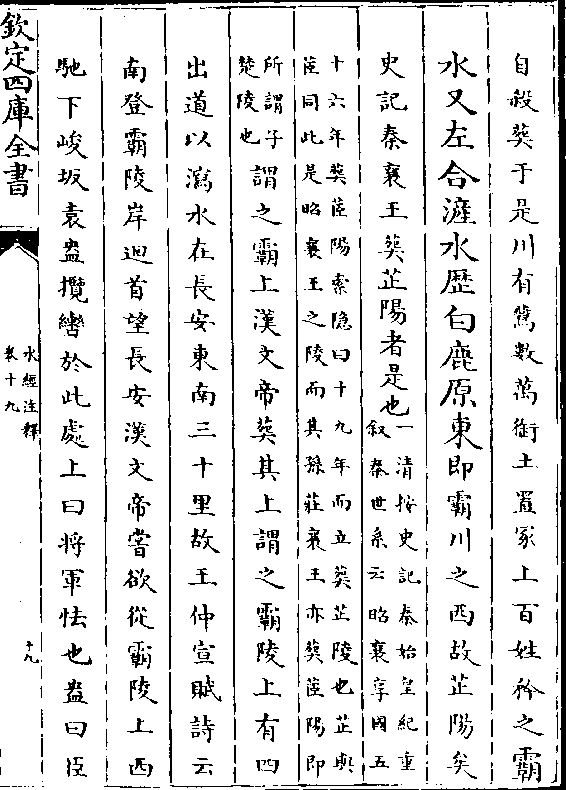 自殺葬于是川有鷰數萬銜土置冢上百姓矜之霸
水又左合滻水歷白鹿原東即霸川之西故芷陽矣
史記秦襄王葬芷陽者是也
一清按史記秦始皇紀重
敘秦世系云昭襄享國五
十六年葬茝陽索隐曰十九年而立葬芷陵也芷與
茝同此是昭襄王之陵而其孫莊襄王亦葬茝陽即
所謂子
楚陵也
謂之霸上漢文帝葬其上謂之霸陵上有四
出道以瀉水在長安東南三十里故王仲宣賦詩云
南登霸陵岸迴首望長安漢文帝嘗欲從霸陵上西
馳下峻坂袁盎攬轡於此處上曰將軍怯也盎曰臣
欽定四庫全書
水經注釋
卷十九
十九